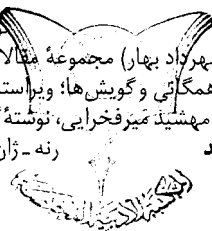 مهرداد بهار) مجموعهٔ مقالا
همگانی و گویش‌ها؛ ویراستـ
مهشید میرفخرایی، نوشتهٔ
د رنه ـ ژان